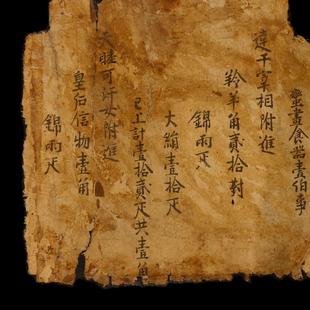 蠻畫食器壹伯事
達干宰相附進
羚羊角貳拾對
錦兩疋
大絹壹拾疋
已上計壹拾貳疋共壹角
天睦可汗女附進
皇后信物壹角
錦兩疋